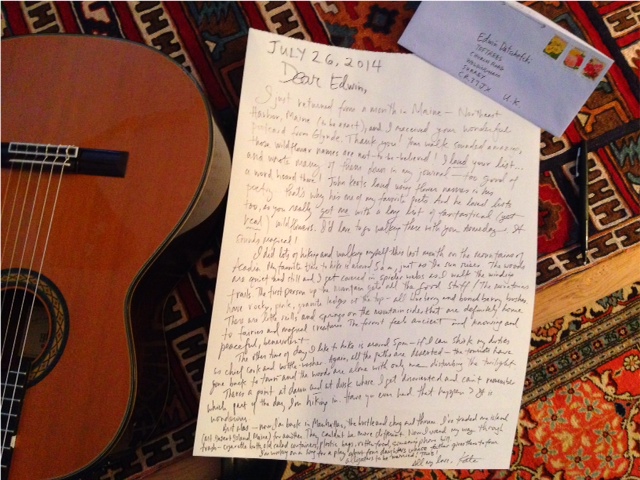 JULY 26, 2014
Dear Edwin,
I just returned from a month in Maine — Northeast
Harbor, Maine (to be exact), and I received your wonderful
postcard from Glynde. Thank you! Your walk sounded amazing,
those wildflower names are not-to-be-believed! I loved your list...
and wrote many of them down in my journal — too good of
a word hoard there! John Keats loved using flower names in his
poetry that's why he's one of my favorite poets and he loved lists
too, so you really got me with a long list of fantastical (yet
real) wildflowers. I'd love to go walking there with you someday... It
sounds magical!
I did lots of hiking and walking myself this last month on the mountains of
Acadia. My favorite time to hike is around 5 a.m., just as the sun rises. The woods
are sweet and still and I get covered in spider webs as I walk the window
trails. The first person up the mountain gets all the good stuff! The mountains
have rocky, pink, granite ledges at the top — all blueberry and bunchberry bushes.
There are little rills and springs on the mountainsides that are definitely home
to fairies and magical creatures. The forest feels ancient and knowing and
peaceful, benevolent.
The other time of day I like to hike is around 5pm — if I can shirk my duties
as chief cook and bottle-washer. Again, all the paths are deserted — the tourists have
gone back to town and the woods are alone with only me... disturbing the twilight.
There's a point at dawn and at dusk where I get disoriented and can't remember
which part of the day I'm hiking in. Have you ever had that happen? It is
wondrous.
But alas — now I'm back in Manhattan, the hustle and throng. I've traded one island
(Mount Desert Island, Maine) for another. They couldn't be more different. Now I wend my way through
trash — cigarette butts, old salad containers, plastic bags, rotten food,
I'm working on a song for a play
All my love, Kate
Edwin
SURREY
U.K.